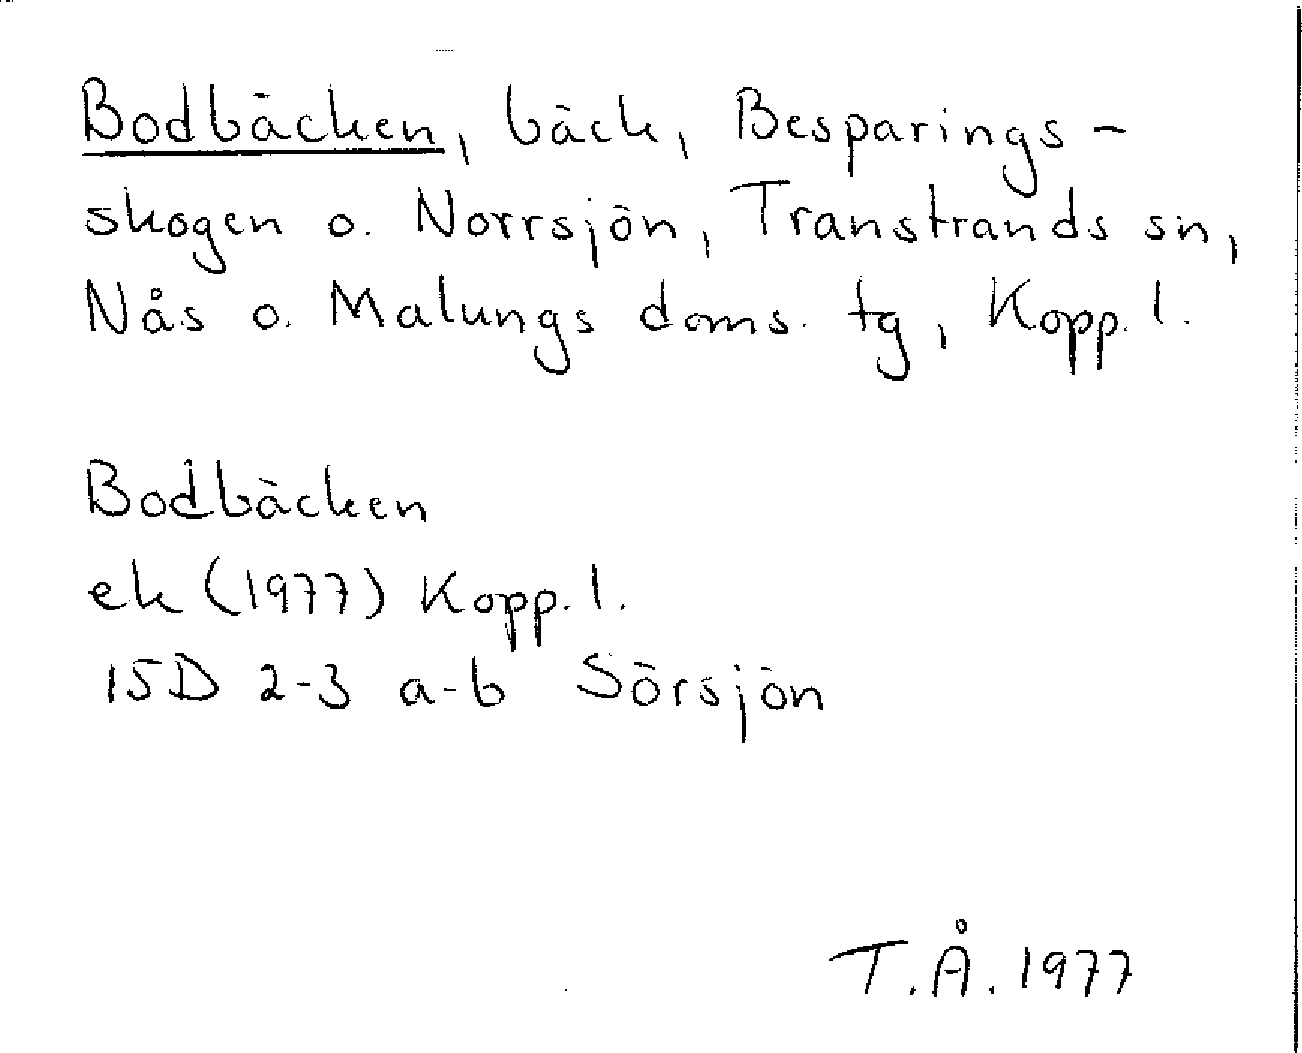 Bodbäcken, bäck, Besparings-
skogen o. Norrsjön, Transtrands sn,
Nås o. Malungs doms. tg, Kopp. l.
Bodbäcken
ek (1977) Kopp. l.
15D 2-3 a-b Sörsjön
T.Å. 1977